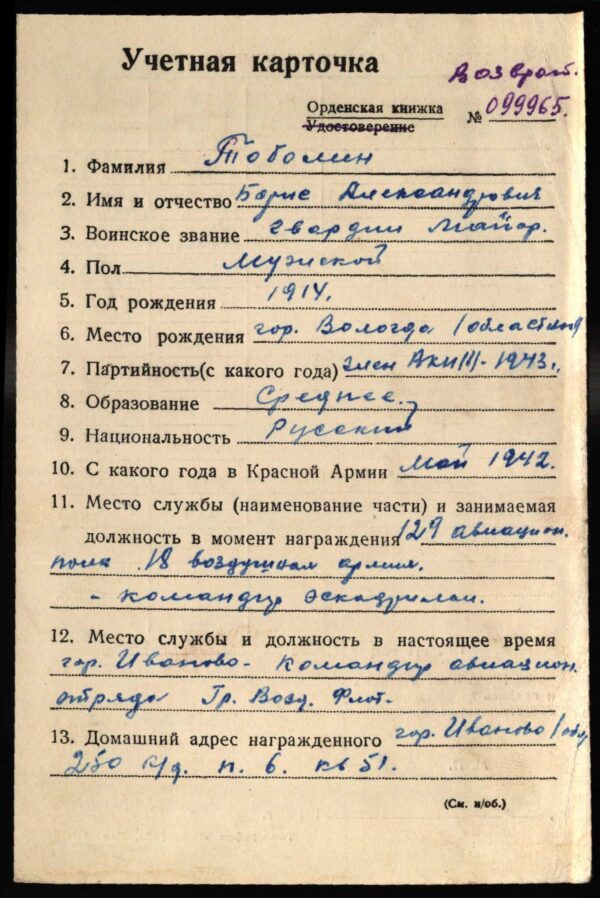 Учетная карточка
Возврат.
Орденская книжка
Удостоверение № 099965.
1. Фамилия Тоболин
2. Имя и отчество Борис Александрович
3. Воинское звание гвардии майор.
4. Пол Мужской
5. Год рождения 1914.
6. Место рождения гор. Вологда (областной)
7. Партийность(с какого года) член ВКП(б)-1943г.
8. Образование Среднее.
9. Национальность Русский
10. С какого года в Красной Армии май 1942.
11. Место службы (наименование части) и занимаемая
должность в момент награждения 129 авиацион.
полк 18 воздушная армия.
- командир эскадрильи.
12. Место службы и должность в настоящее время
гор. Иваново- командир авиацион.
отряда Гр. Возд. Флот.
13. Домашний адрес награжденного гор. Иваново (обл
250 п. 6. кв 51.
(См. н/об.)